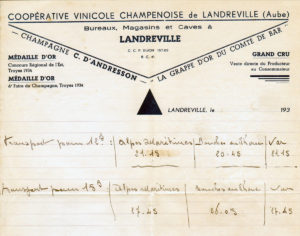 COOPÉRATIVE VINICOLE CHAMPENOISE de LANDREVILLE (Aube)
Bureaux, Magasins et Caves à
LANDREVILLE
R. C. M.
CHAMPAGNE C. D'ANDRESSON
LA GRAPPE D'OR DU COMTE DE BAR
MÉDAILLE D'OR
Concours Régional de l'Est,
Troyes 1934
MÉDAILLE D'OR
6e Foire de Champagne, Troyes 1934
GRAND CRU
Vente directe du Producteur
au Consommateur
LANDREVILLE, le 193
transport pour 12º : Alpes Maritimes Bouches du Rhône Var
21.15 20.45 21.15
transport pour 18º Alpes Maritimes Bouches du Rhône Var
27.45